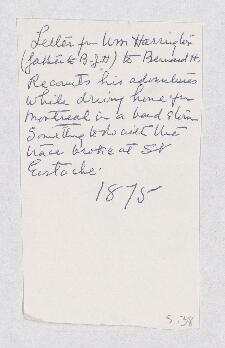 Letter fm Wm Harrington
(father to B.J.H) to Bernard H.
Recounts his adventures
while driving home fm
Montreal in a bad storm
Something to do with the
trace broke at St
Eustache.
1875